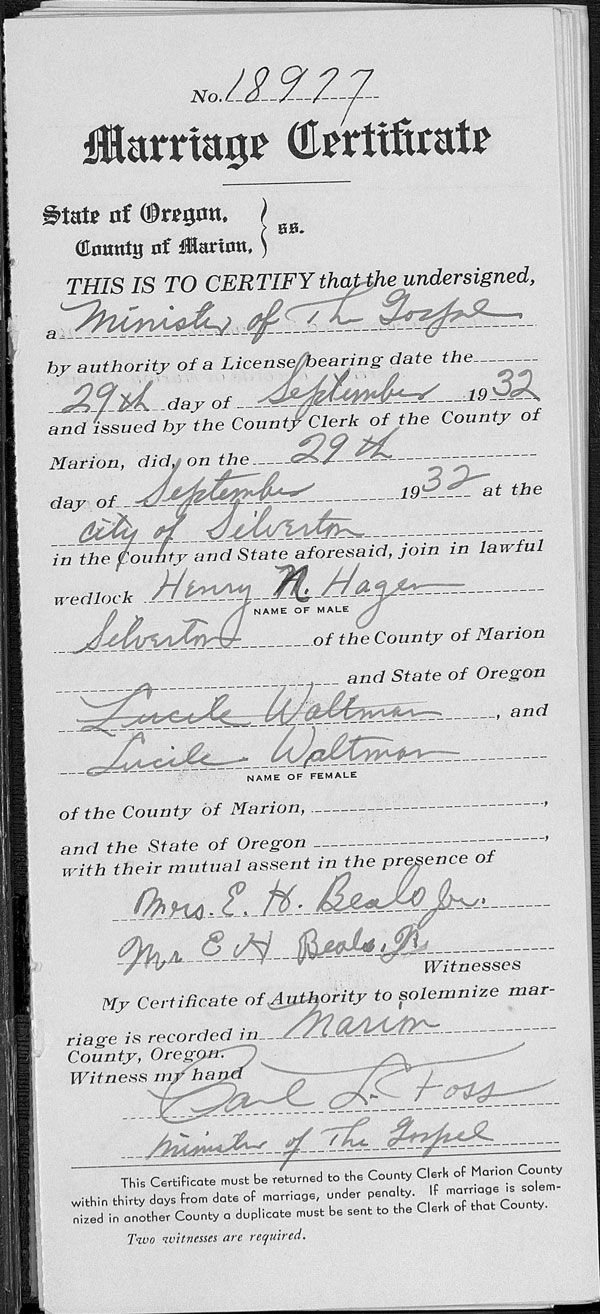 No. 18977
Marriage Certificate
State of Oregon,
County of Marion, } ss.
THIS IS TO CERTIFY that the undersigned,
a Minister of The Gospel
by authority of a License bearing date the
29th day of September 1932
and issued by the County Clerk of the County of
Marion, did, on the 29th
day of September 1932 at the
city of Silverton
in the County and State aforesaid, join in lawful
wedlock Henry N. Hagen
NAME OF MALE
Silverton of the County of Marion
and State of Oregon
Lucile Waltman, and
Lucile Waltman
NAME OF FEMALE
of the County of Marion, ,
and the State of Oregon ,
with their mutual assent in the presence of
Mrs. E. H. Beals Jr.
Mr E H Beals. Jr
Witnesses
My Certificate of Authority to solemnize mar-
riage is recorded in Marion
County, Oregon.
Witness my hand
Carl L. Foss
Minister of The Gospel
This Certificate must be returned to the County Clerk of Marion County
within thirty days from date of marriage, under penalty. If marriage is solem-
nized in another County a duplicate must be sent to the Clerk of that County.
Two witnesses are required.